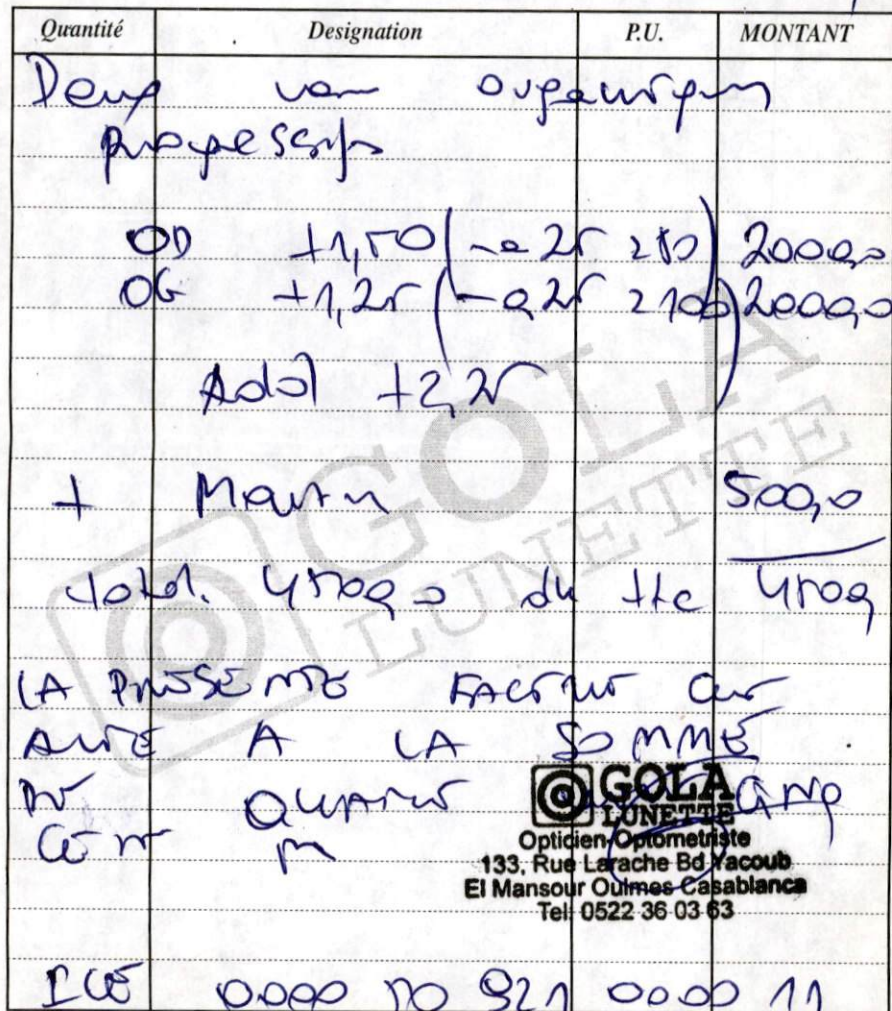 Quantité Designation P.U. MONTANT
Deux verres organiques
progressifs
OD +1,50 (-0,25 à 80) 2000,0
OG +1,25 (-0,25 à 100) 2000,0
Add +2,25
+ Monture 500,0
total. 4500,0 dh ttc 4500
LA PRESENTE FACTURE est
A LA SOMME
DE QUATRE CINQ
CENT
GOLA
LUNETTE
Opticien-Optometriste
133, Rue Larache Bd Yacoub
El Mansour Oulmes Casablanca
Tel: 0522 36 03 63
ICE 0000 50 921 0000 11
GOLA
LUNETTE